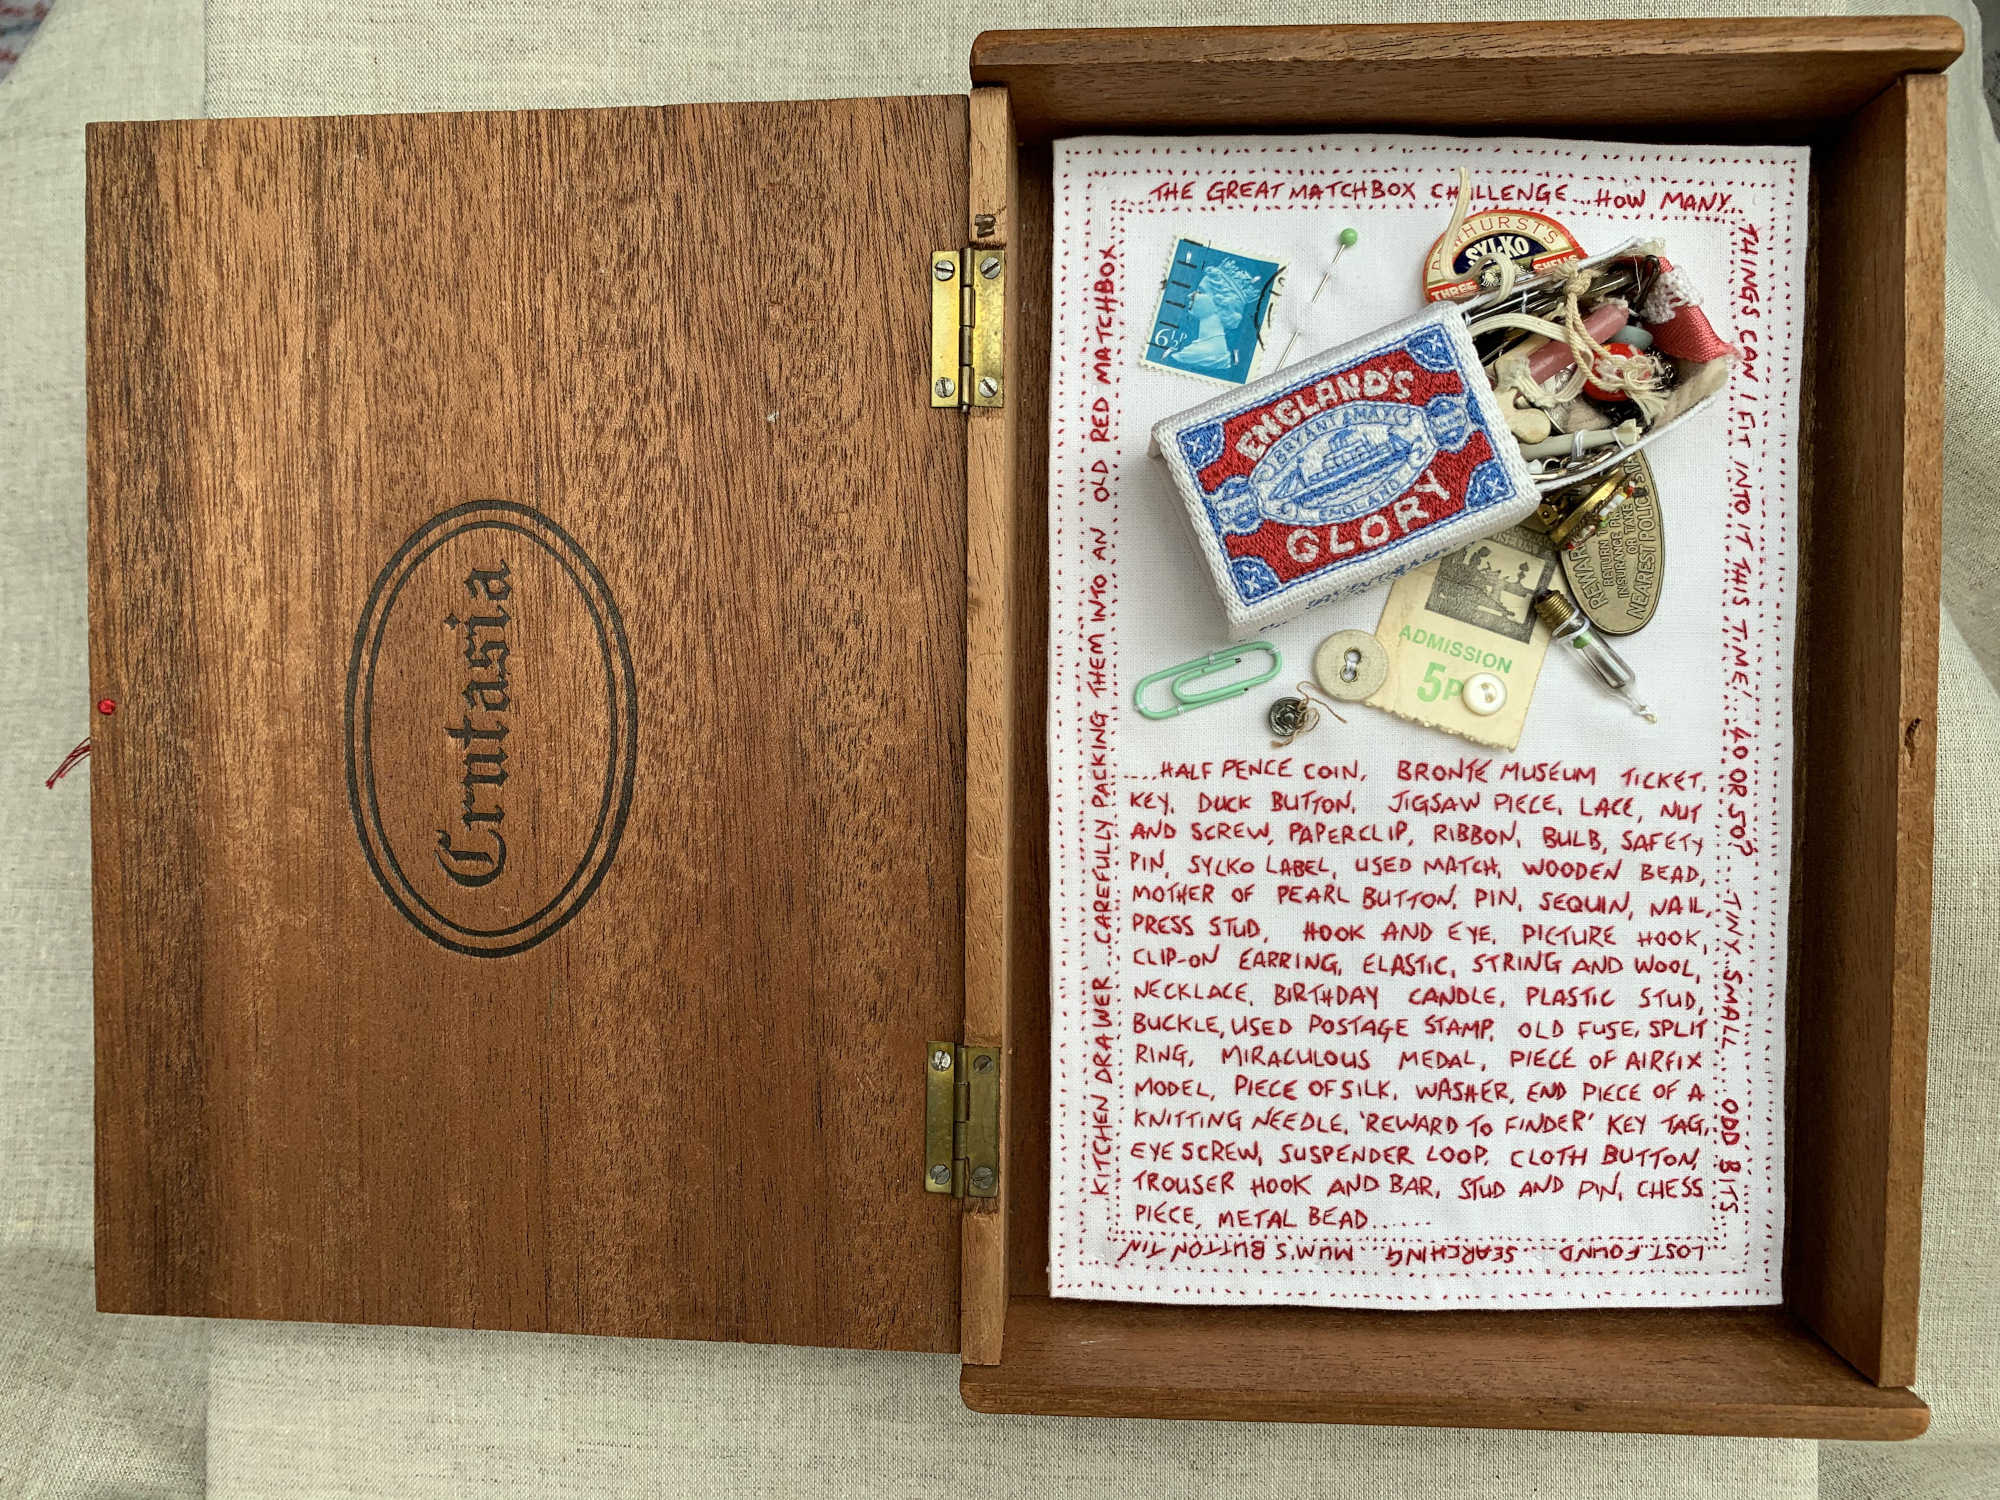 Crutasia
THE GREAT MATCHBOX CHALLENGE... HOW MANY...
THINGS CAN I FIT INTO IT THIS TIME! 40 OR 50?... TINY... SMALL... ODD BITS...
...LOST... FOUND... ...SEARCHING... MUM'S BUTTON TIN
KITCHEN DRAWER... CAREFULLY PACKING THEM INTO AN OLD RED MATCHBOX
6½P
HURST'S
SYLKO
THREE SHELLS
ENGLAND'S
BRYANT & MAY
ENGLAND
GLORY
REWARD
RETURN TO
INSURANCE
OR TAKE
NEAREST POLICE
ADMISSION
5P
....HALF PENCE COIN, BRONTË MUSEUM TICKET,
KEY, DUCK BUTTON, JIGSAW PIECE, LACE, NUT
AND SCREW, PAPERCLIP, RIBBON, BULB, SAFETY
PIN, SYLKO LABEL, USED MATCH, WOODEN BEAD,
MOTHER OF PEARL BUTTON, PIN, SEQUIN, NAIL,
PRESS STUD, HOOK AND EYE, PICTURE HOOK,
CLIP-ON EARRING, ELASTIC, STRING AND WOOL,
NECKLACE, BIRTHDAY CANDLE, PLASTIC STUD,
BUCKLE, USED POSTAGE STAMP, OLD FUSE, SPLIT
RING, MIRACULOUS MEDAL, PIECE OF AIRFIX
MODEL, PIECE OF SILK, WASHER, END PIECE OF A
KNITTING NEEDLE, 'REWARD TO FINDER' KEY TAG,
EYE SCREW, SUSPENDER LOOP, CLOTH BUTTON,
TROUSER HOOK AND BAR, STUD AND PIN, CHESS
PIECE, METAL BEAD......